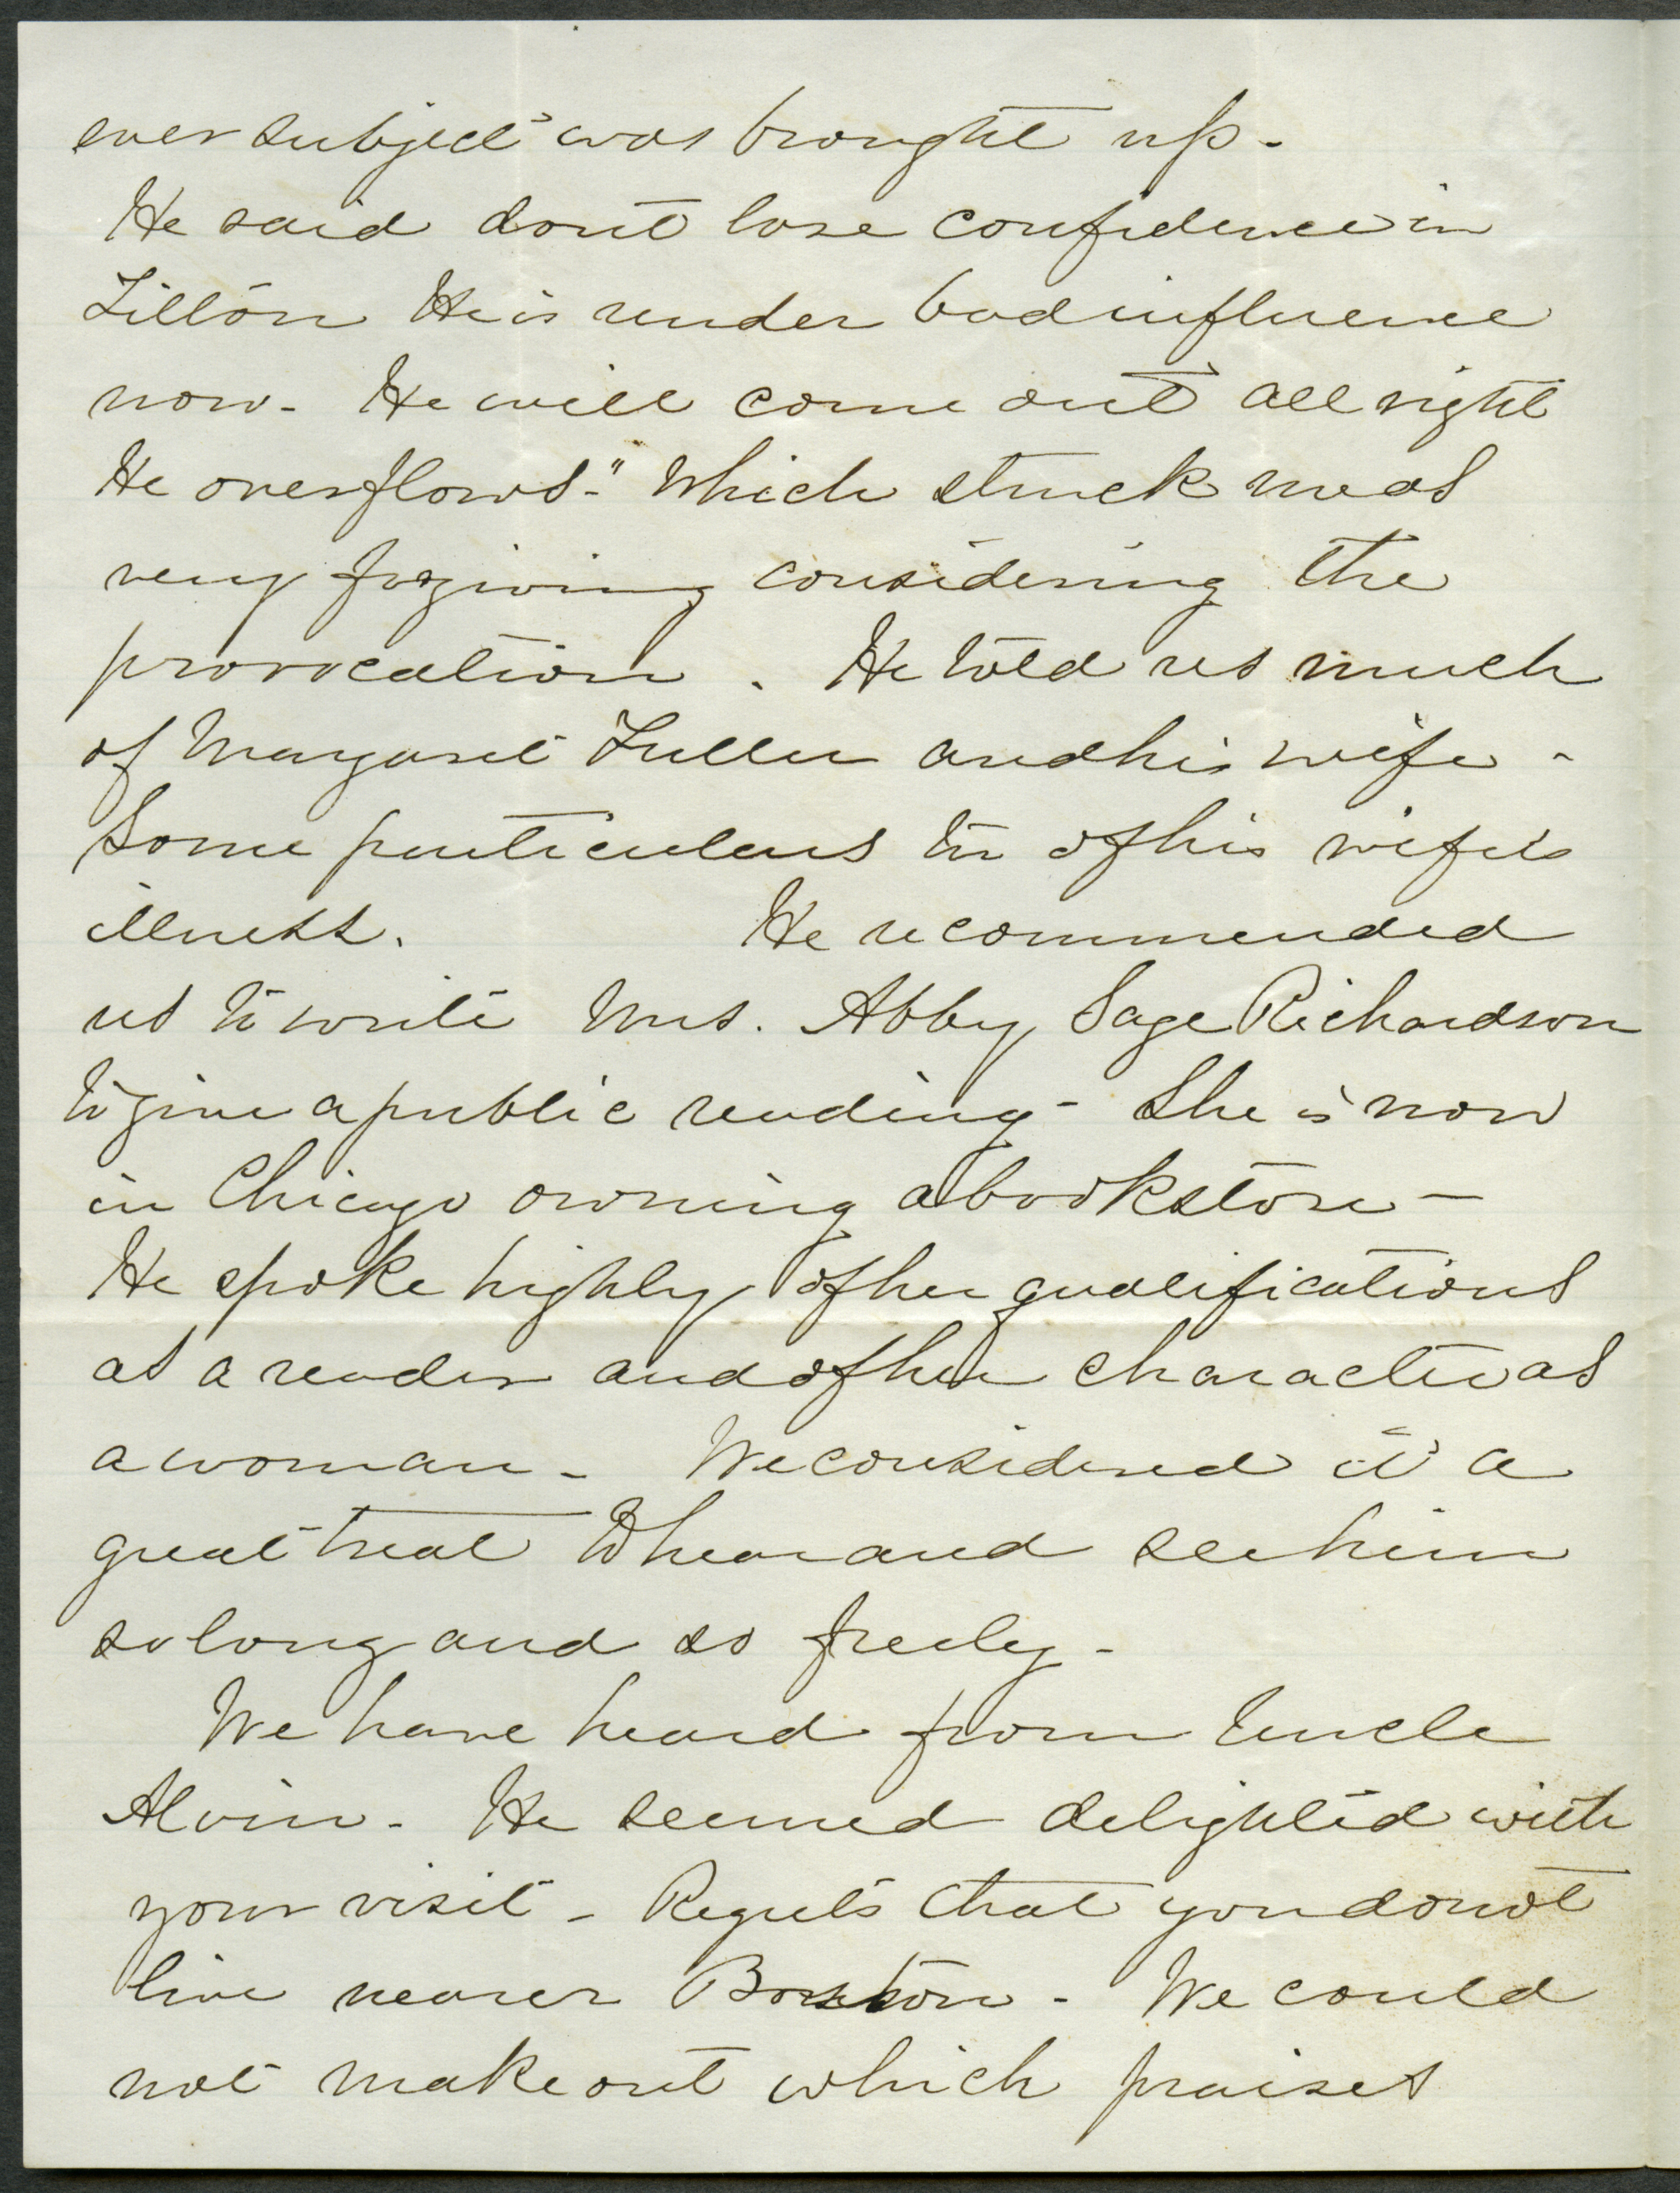 ever subject was brought up -
He said dont lose confidence in
Tilton He is under bad influence
now - He will come out all right
He overflows." Which struck me as
very forgiving considering the
provocation . He told us much
of Margaret Fuller and his wife -
Some particulars too of his wife's
illness. He recommended
us to write Mrs. Abby Sage Richardson
to give a public reading - She is now
in Chicago owning a bookstore -
He spoke highly of her qualifications
as a reader and of her character as
a woman - We considered it a
great treat to hear and see him
so long and so freely -
We have heard from Uncle
Alvin - He seemed delighted with
your visit - Regrets that you do not
live nearer Boston - We could
not make out which praises